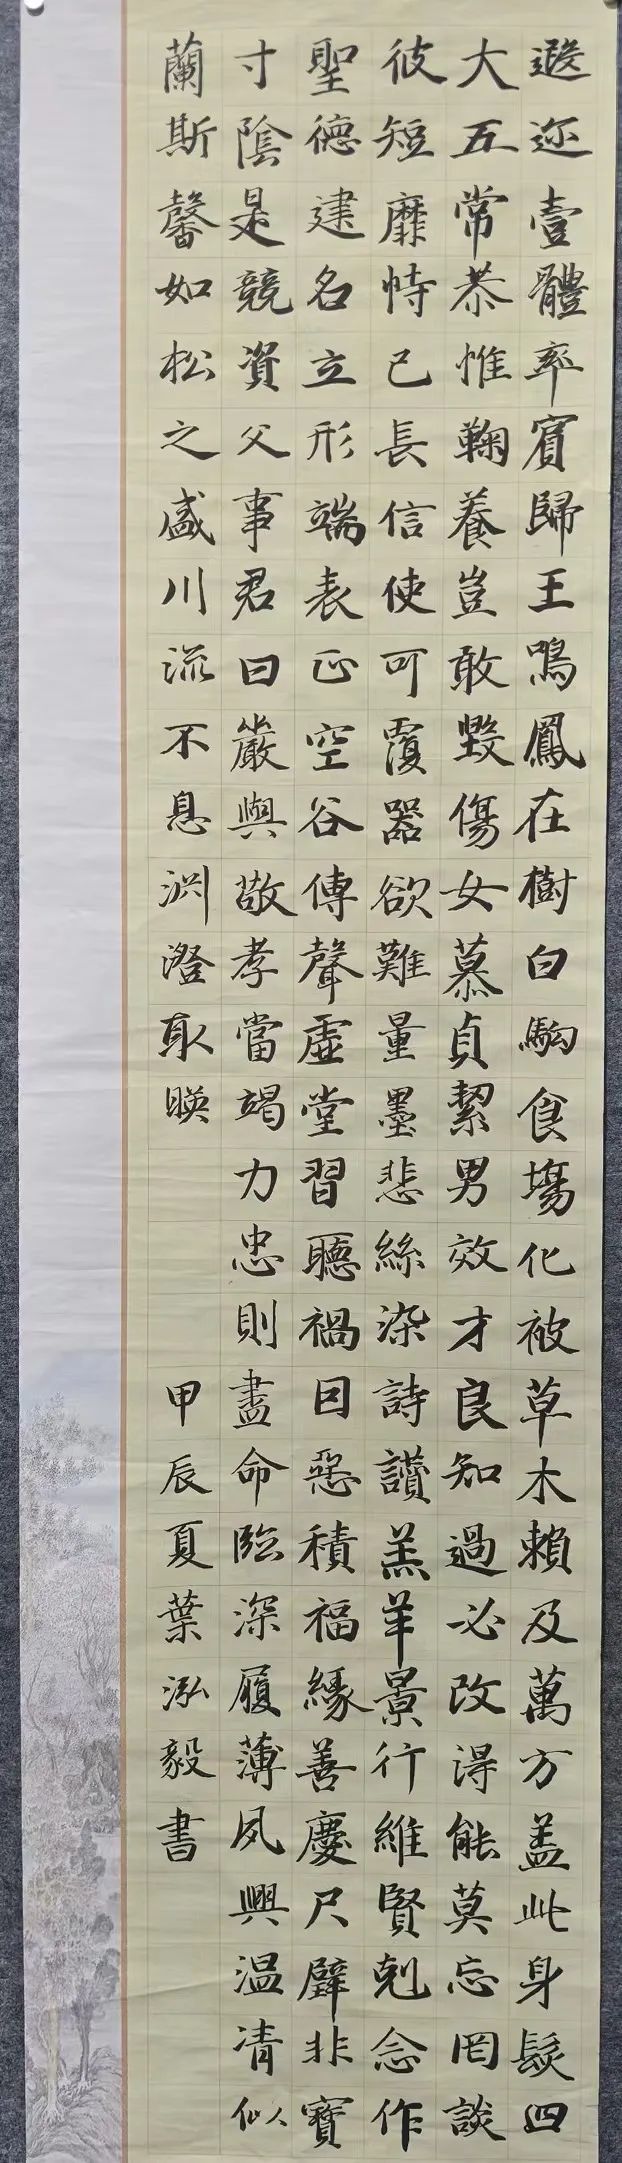 遐迩壹體率賓歸王鳴鳳在樹白駒食場化被草木賴及萬方蓋此身髮四
大五常恭惟鞠養豈敢毀傷女慕貞絜男效才良知過必改得能莫忘罔談
彼短靡恃己長信使可覆器欲難量墨悲絲染詩讚羔羊景行維賢剋念作
聖德建名立形端表正空谷傳聲虛堂習聽禍因惡積福緣善慶尺璧非寶
寸陰是競資父事君曰嚴與敬孝當竭力忠則盡命臨深履薄夙興温凊似
蘭斯馨如松之盛川流不息淵澄取暎
甲辰夏葉泓毅書